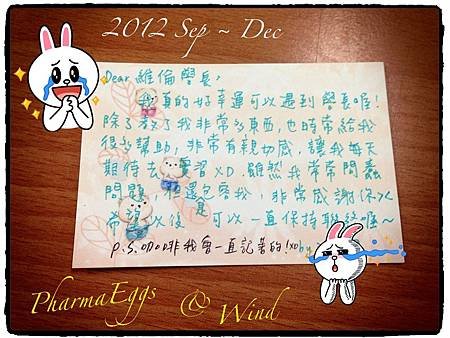 2012 Sep ~ Dec
Dear 維倫學長，
我真的好幸運可以遇到學長喔！
除了教了我非常多東西，也時常給我
很多幫助，非常有親切感，讓我每天
期待去實習XD，雖然我常常問蠢
問題，你還包容我，非常感謝你><
希望以後還可以一直保持聯絡喔~
P.S.咖啡我會一直記著的！XD by
PharmaEggs @ Wind